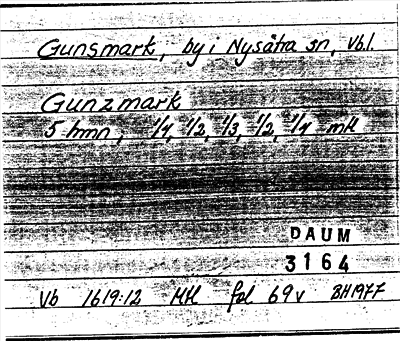 Gunsmark, by i Nysätra sn, Vb.l.
Gunzmark
5 hmn, 1/4, 1/2, 1/3, 1/2, 1/4 mk
DAUM
3164
Vb 1619:12 MH fol 69v BH1977